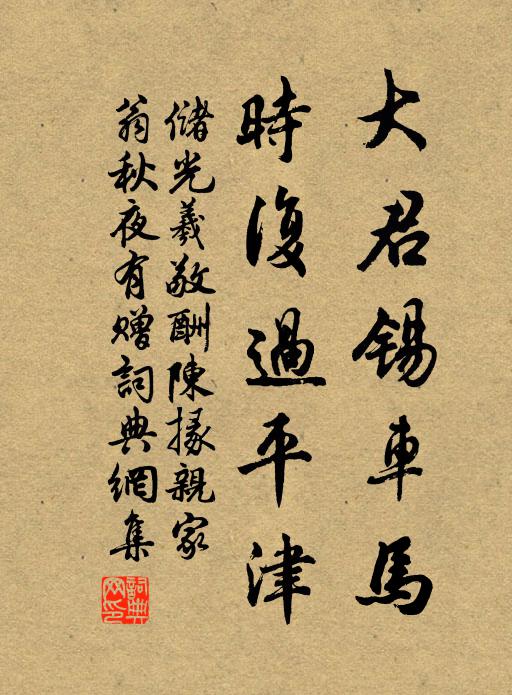 大君錫車馬
時復過平津
儲光羲敬酬陳掾親家
翁秋夜有贈詞典網集
詞典
网印